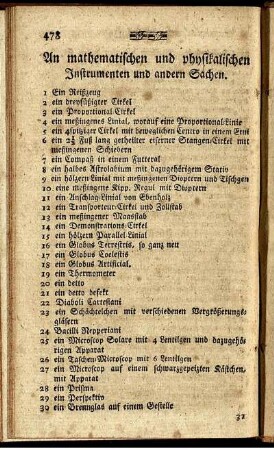 478
An mathematischen und physikalischen
Instrumenten und andern Sachen.
1 Ein Reißzeug
2 ein dreyfüßigter Cirkel
3 ein Proportional-Cirkel
4 ein meßingnes Linial, worauf eine Proportional-Linie
5 ein 4spitziger Cirkel mit beweglichen Centro in einem Etui
6 ein 2½ Fuß lang getheilter eiserner Stangen-Cirkel mit
meßingenen Schiebern
7 ein Compaß in einem Futteral
8 ein halbes Astrolabium mit dazugehörigem Stativ
9 ein hölzern Linial mit meßingenen Dioptern und Tischgen
10 eine meßingene Kipp-Regul mit Dioptern
11 ein Anschlag-Linial von Ebenholz
12 ein Transporteur-Cirkel und Zollstab
13 ein meßingener Maasstab
14 ein Demonstrations-Cirkel
15 ein hölzern Parallel-Linial
16 ein Globus Terrestris, so ganz neu
17 ein Globus Coelestis
18 ein Globus Artificial.
19 ein Thermometer
20 ein detto
21 ein detto defekt
22 Diaboli Cartesiani
23 ein Schächtelchen mit verschiedenen Vergrößerungs-
gläsern
24 Bacilli Repperiani
25 ein Microscop Solare mit 4 Lentilgen und dazugehö-
rigen Apparat
26 ein Taschen-Microscop mit 6 Lentilgen
27 ein Microscop auf einem schwarzgepeizten Kästchen,
mit Apparat
28 ein Prisma
29 ein Perspektiv
30 ein Brennglas auf einem Gestelle
31